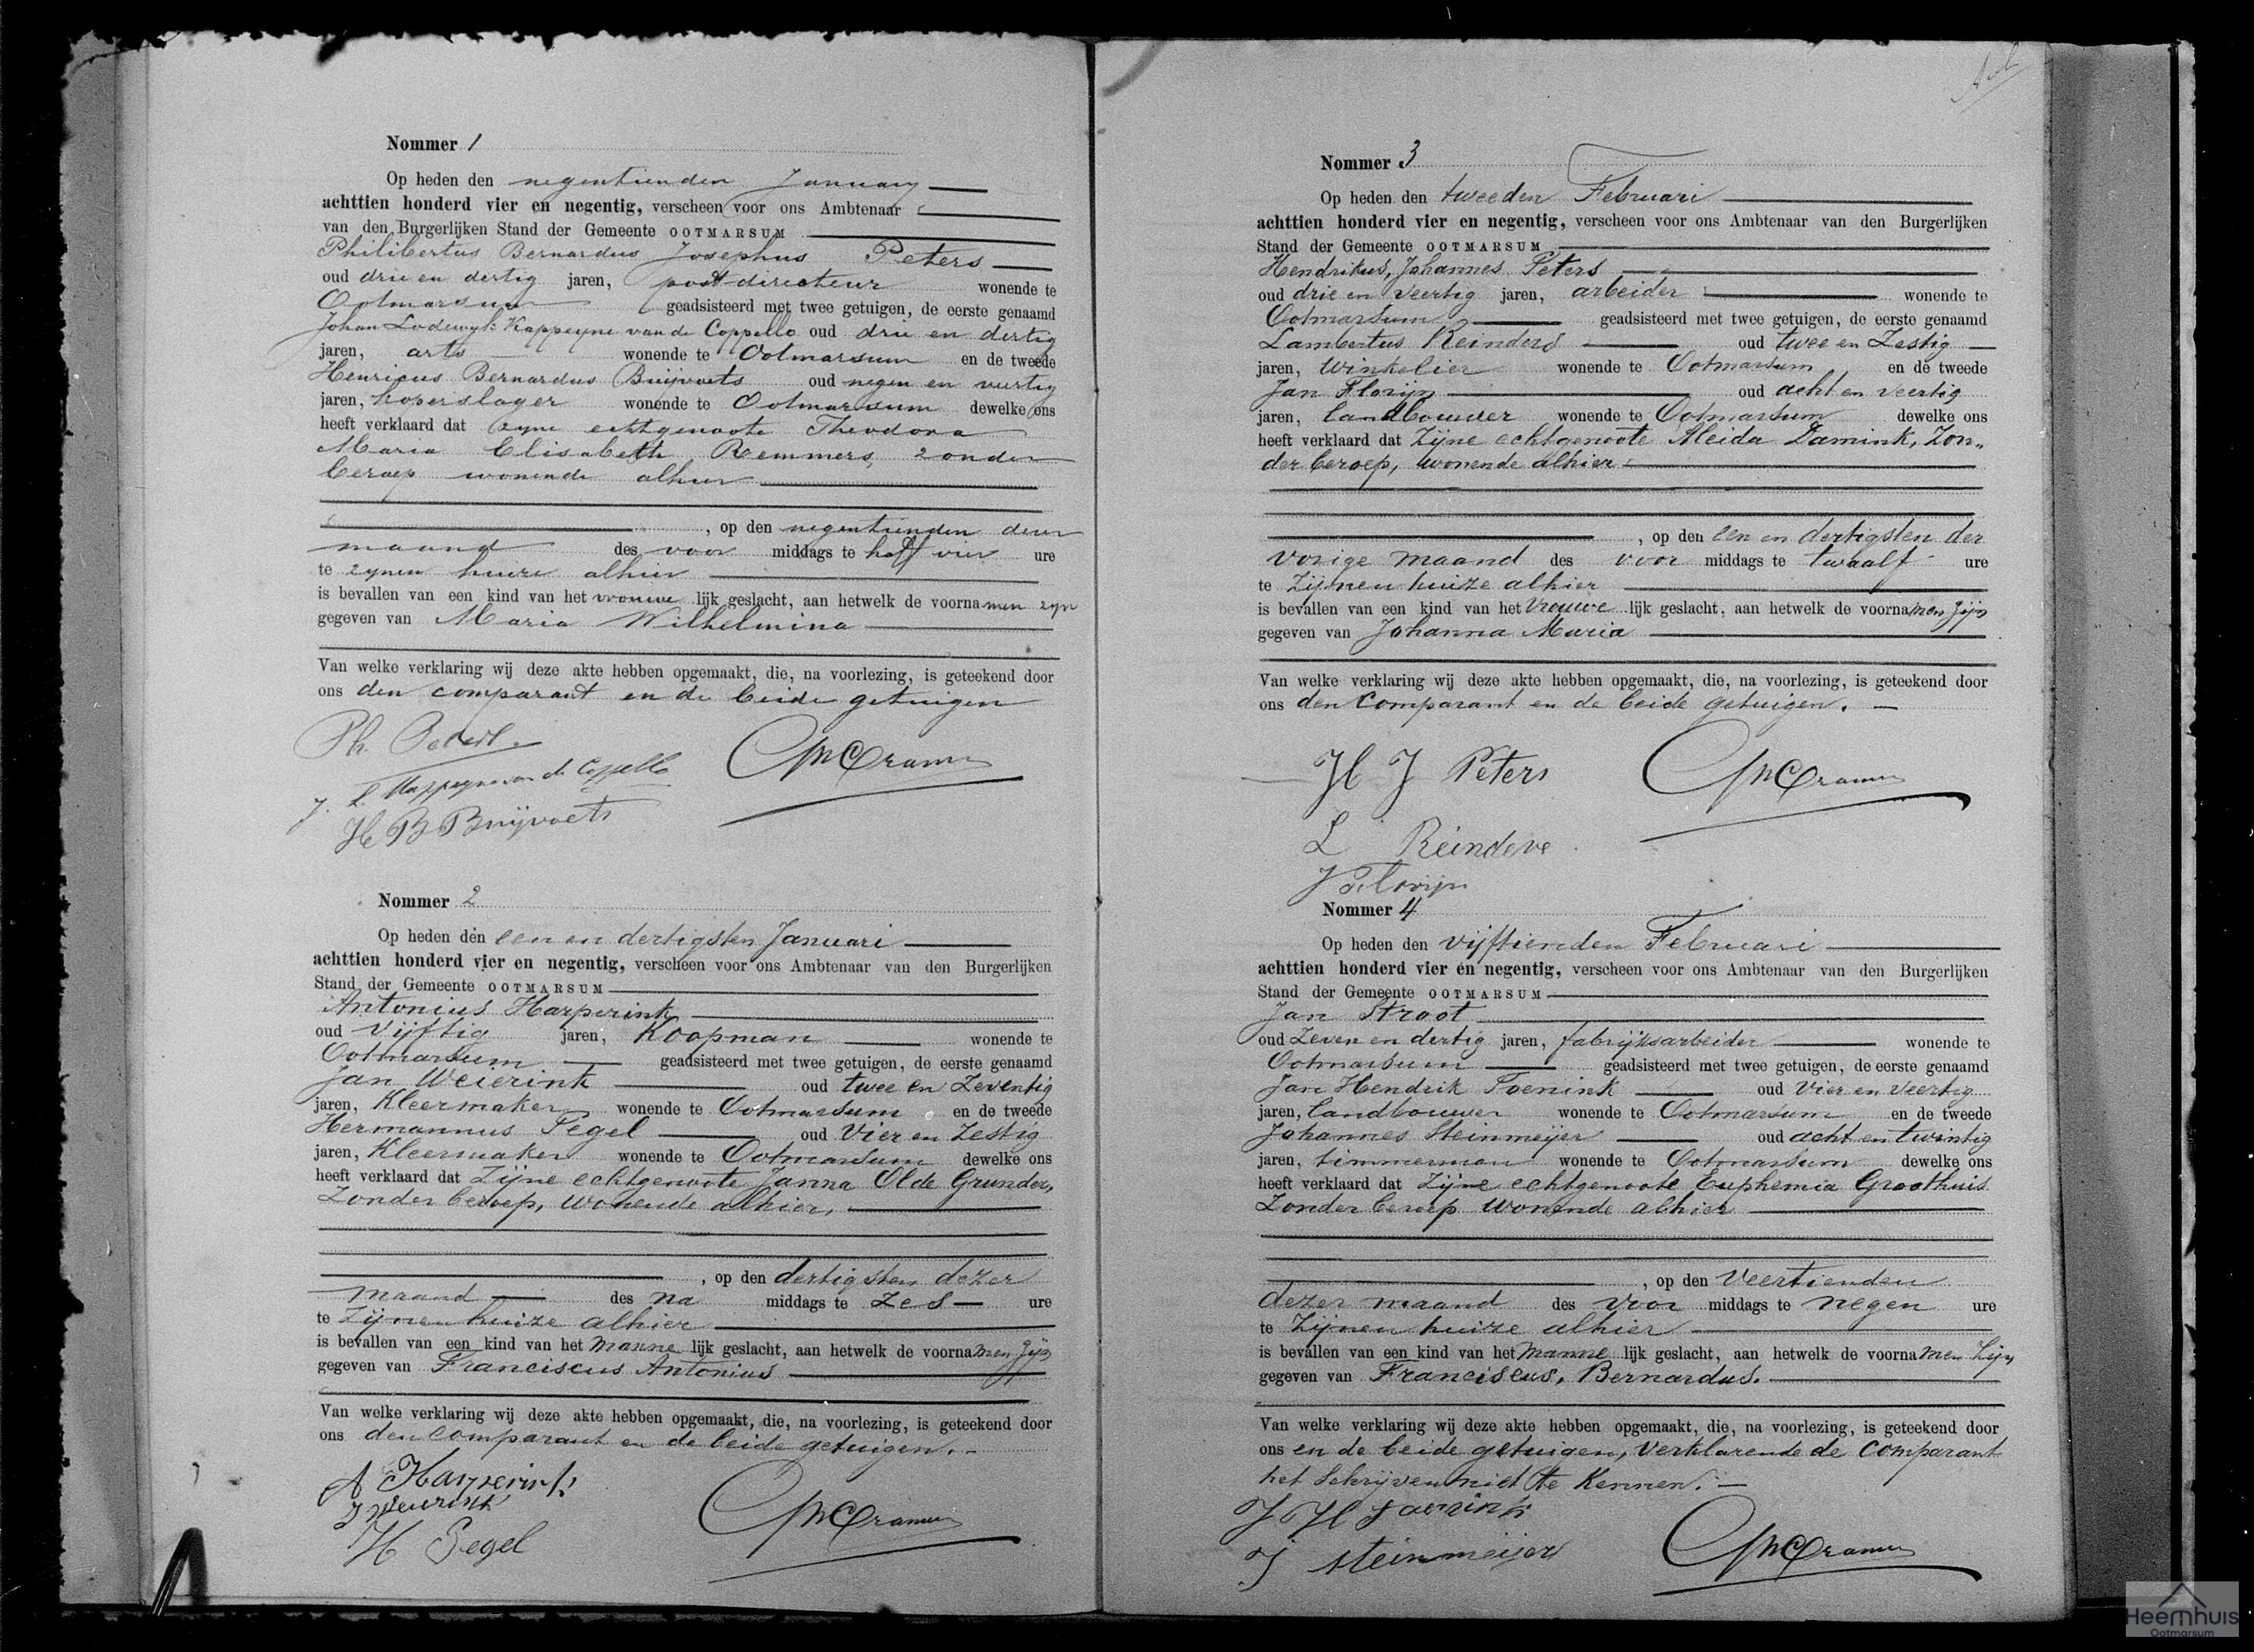 Nommer 1
Op heden den negentienden January
achttien honderd vier en negentig, verscheen voor ons Ambtenaar
van den Burgerlijken Stand der Gemeente OOTMARSUM
Philibertus Bernardus Josephus Peters
oud drie en dertig jaren, postdirecteur wonende te
Ootmarsum geadsisteerd met twee getuigen, de eerste genaamd
Johan Lodewyk Kappeyne van de Coppello oud drie en dertig
jaren, arts wonende te Ootmarsum en de tweede
Henricus Bernardus Buijvoets oud negen en veertig
jaren, koperslager wonende te Ootmarsum dewelke ons
heeft verklaard dat zyne echtgenoote Theodora
Maria Elisabeth Remmers, zonder
beroep wonende alhier
, op den negentienden dezer
maand des voor middags te half vier ure
te zynen huize alhier
is bevallen van een kind van het vrouwe lijk geslacht, aan hetwelk de voornamen zyn
gegeven van Maria Wilhelmina
Van welke verklaring wij deze akte hebben opgemaakt, die, na voorlezing, is geteekend door
ons den comparant en de beide getuigen
Ph. Peters
J. L. Kappeyne van de Coppello
H B Buijvoets
Nommer 2
Op heden den een en dertigsten Januari
achttien honderd vier en negentig, verscheen voor ons Ambtenaar van den Burgerlijken
Stand der Gemeente OOTMARSUM
Antonius Harperink
oud vijftig jaren, Koopman wonende te
Ootmarsum geadsisteerd met twee getuigen, de eerste genaamd
Jan Weierink oud twee en Zeventig
jaren, Kleermaker wonende te Ootmarsum en de tweede
Hermannus Pegel oud Vier en Zestig
jaren, Kleermaker wonende te Ootmarsum dewelke ons
heeft verklaard dat Zijne echtgenoote Janna Olde Grunder,
Zonder beroep, wonende alhier,
, op den dertigsten dezer
maand des na middags te zes ure
te Zijnen huize alhier
is bevallen van een kind van het manne lijk geslacht, aan hetwelk de voornamen zijn
gegeven van Franciscus Antonius
Van welke verklaring wij deze akte hebben opgemaakt, die, na voorlezing, is geteekend door
ons den comparant en de beide getuigen.
A Harperink
J Weierink
H Pegel
Nommer 3
Op heden den tweeden Februari
achttien honderd vier en negentig, verscheen voor ons Ambtenaar van den Burgerlijken
Stand der Gemeente OOTMARSUM
Hendrikus, Johannes Peters
oud drie en veertig jaren, arbeider wonende te
Ootmarsum geadsisteerd met twee getuigen, de eerste genaamd
Lambertus Reinders oud twee en Zestig
jaren, winkelier wonende te Ootmarsum en de tweede
Jan Florijn oud acht en veertig
jaren, landbouwer wonende te Ootmarsum dewelke ons
heeft verklaard dat Zijne echtgenoote Aleida Damink, Zon„
der beroep, wonende alhier
, op den een en dertigsten der
vorige maand des voor middags te twaalf ure
te Zijnen huize alhier
is bevallen van een kind van het vrouwe lijk geslacht, aan hetwelk de voornamen zijn
gegeven van Johanna Maria
Van welke verklaring wij deze akte hebben opgemaakt, die, na voorlezing, is geteekend door
ons den Comparant en de beide getuigen.
H J Peters
L Reinders
J Florijn
Nommer 4
Op heden den vijftienden Februari
achttien honderd vier en negentig, verscheen voor ons Ambtenaar van den Burgerlijken
Stand der Gemeente OOTMARSUM
Jan Stroot
oud Zeven en dertig jaren, fabrijksarbeider wonende te
Ootmarsum geadsisteerd met twee getuigen, de eerste genaamd
Jan Hendrik Poenink oud Vier en Veertig
jaren, landbouwer wonende te Ootmarsum en de tweede
Johannes Steinmeijer oud acht en twintig
jaren, timmerman wonende te Ootmarsum dewelke ons
heeft verklaard dat Zijne echtgenoote Euphemia Groothuis
Zonder beroep wonende alhier
, op den Veertienden
dezer maand des voor middags te negen ure
te Zijnen huize alhier
is bevallen van een kind van het manne lijk geslacht, aan hetwelk de voornamen zijn
gegeven van Franciscus, Bernardus.
Van welke verklaring wij deze akte hebben opgemaakt, die, na voorlezing, is geteekend door
ons en de beide getuigen, verklarende de comparant
het schrijven niet te Kennen.
J Steinmeijer
Heemhuis
Ootmarsum